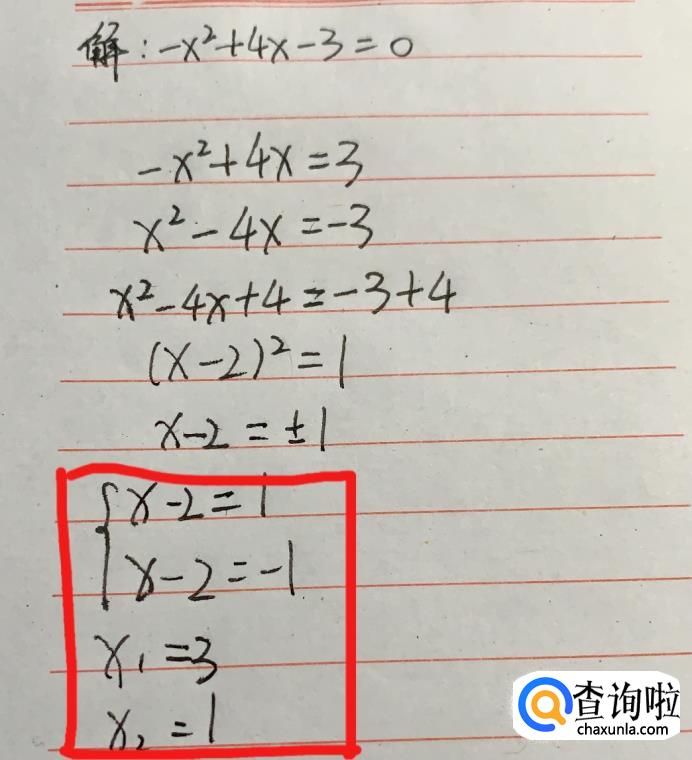 解：-x²+4x-3=0
-x²+4x=3
x²-4x=-3
x²-4x+4=-3+4
(x-2)²=1
x-2=±1
{x-2=1
x-2=-1
x₁=3
x₂=1
查询啦
chaxunla.com